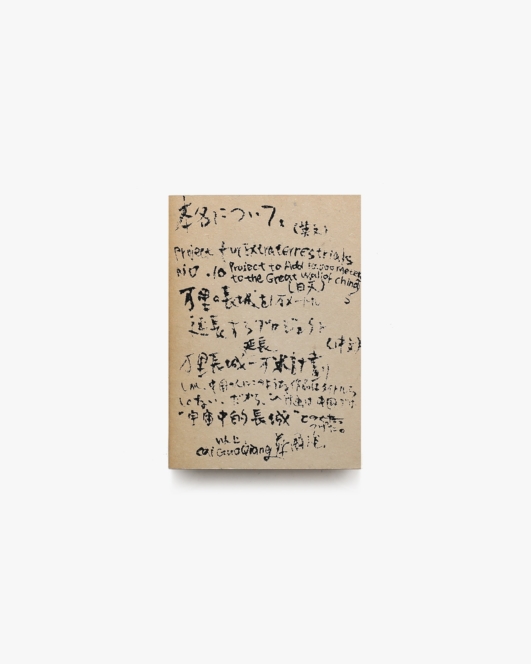 案名について。
(英文)
Project for Extraterrestrials
No .10 Project to Add 10,000 Meters
to the Great Wall of China
(日文)
万里の長城を1万メートル
延長するプロジェクト
延長
(中文)
万里長城一万米計劃
しかし、中国の人にこのような作品は
しない。だから、この計画は中国では
"宇宙中的長城"と
以上
Cai Guo Qiang 蔡國強